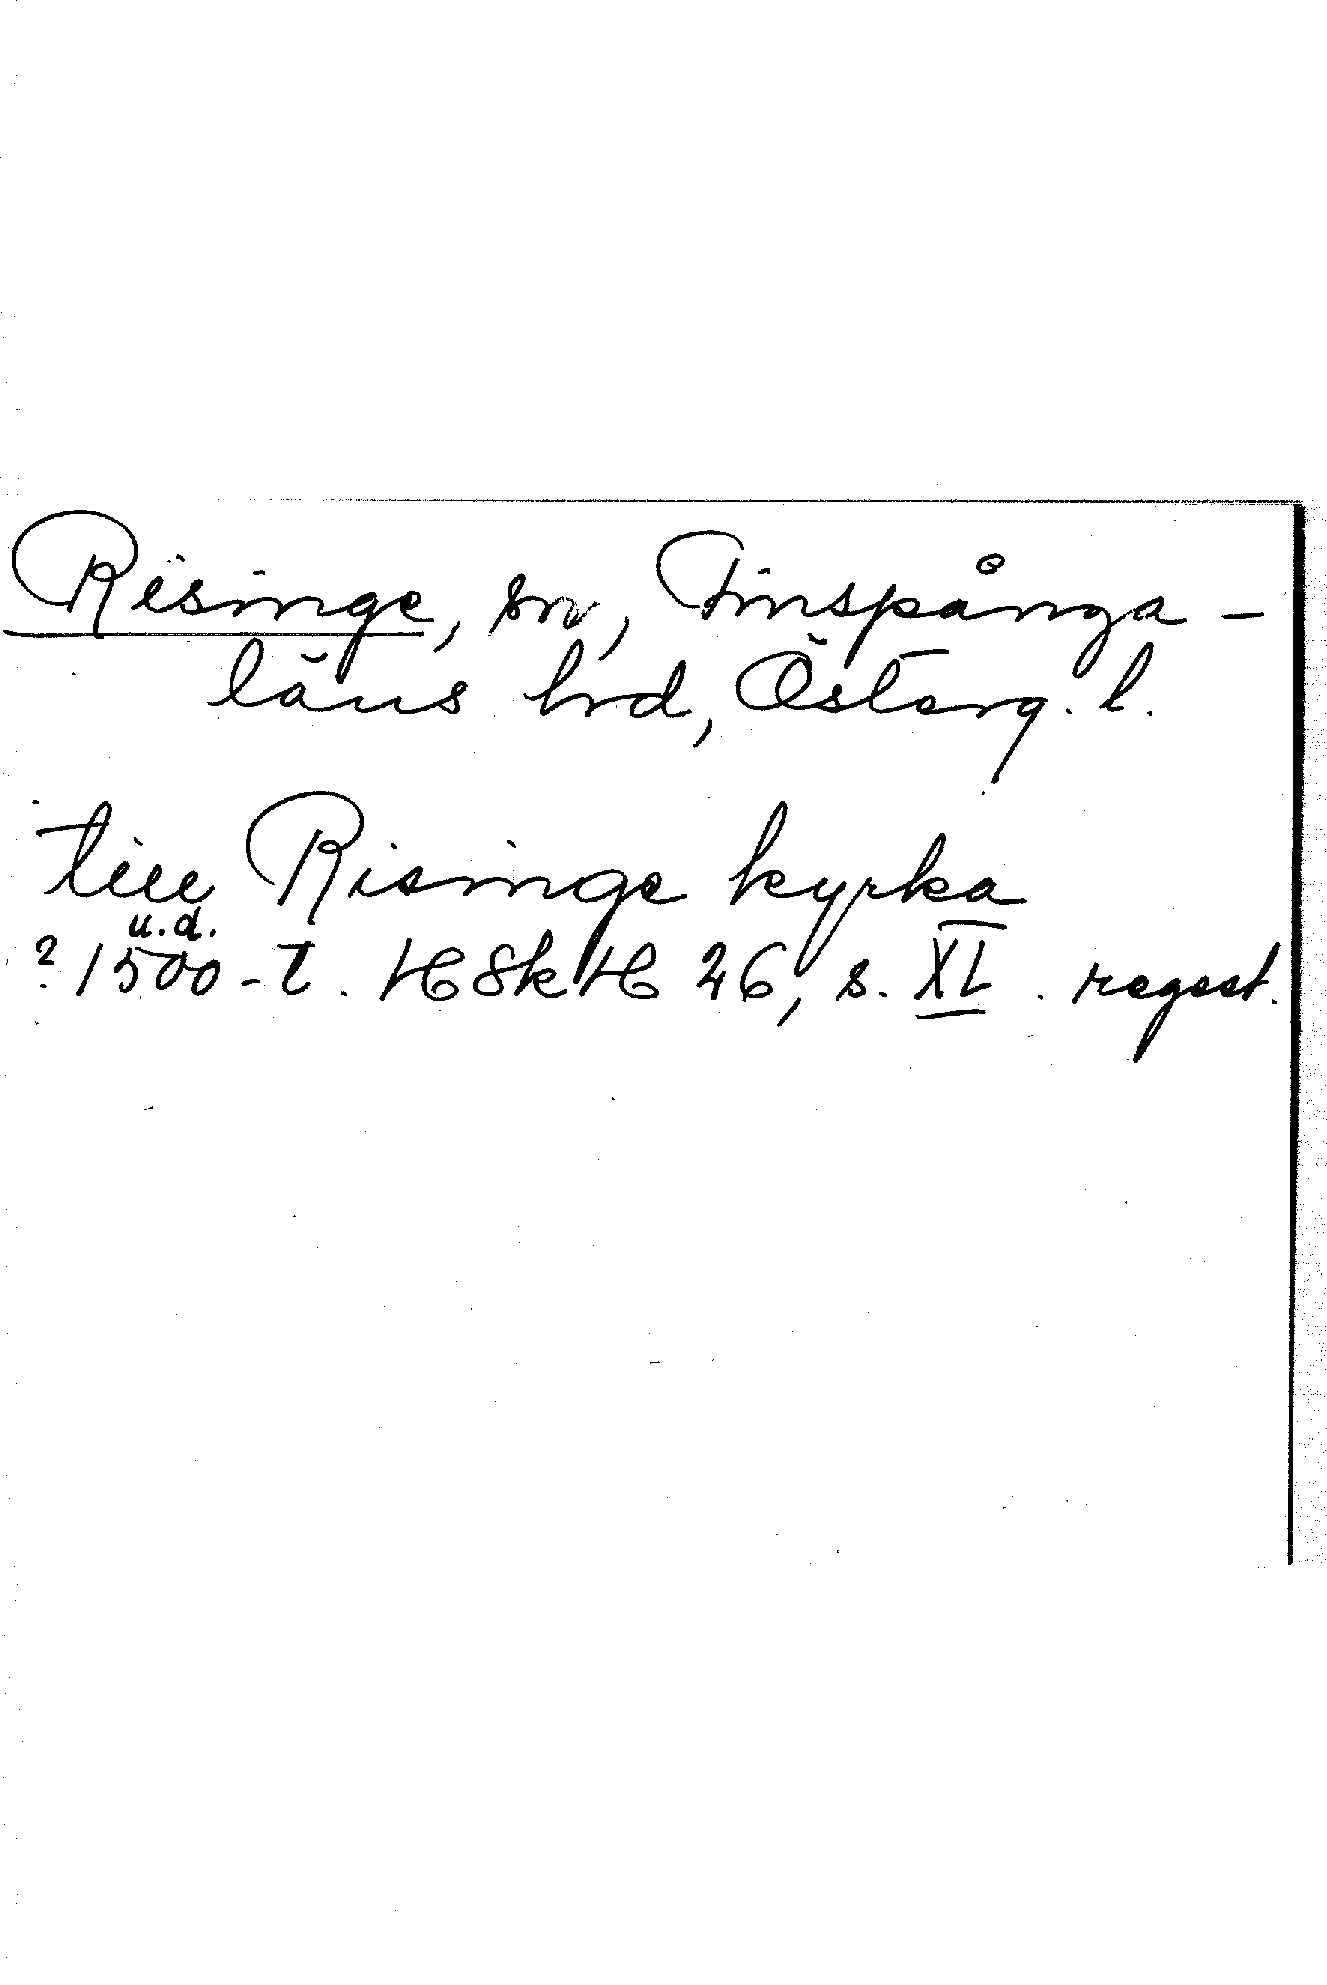 Risinge, sn, Finspånga-
läns hrd, Österg. l.
till Risinge kyrka
u.d.
? 1500-t. HSkH 26, s. XL. regest.